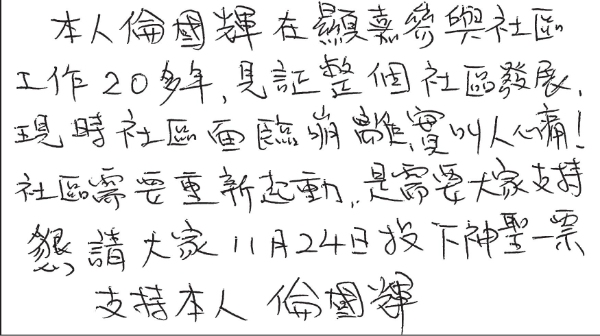 本人倫國輝在顯嘉參與社區
工作20多年,見証整個社區發展,
現時社區面臨崩離,實叫人心痛!
社區需要重新起動,是需要大家支持
懇請大家11月24日投下神聖一票
支持本人 倫國輝